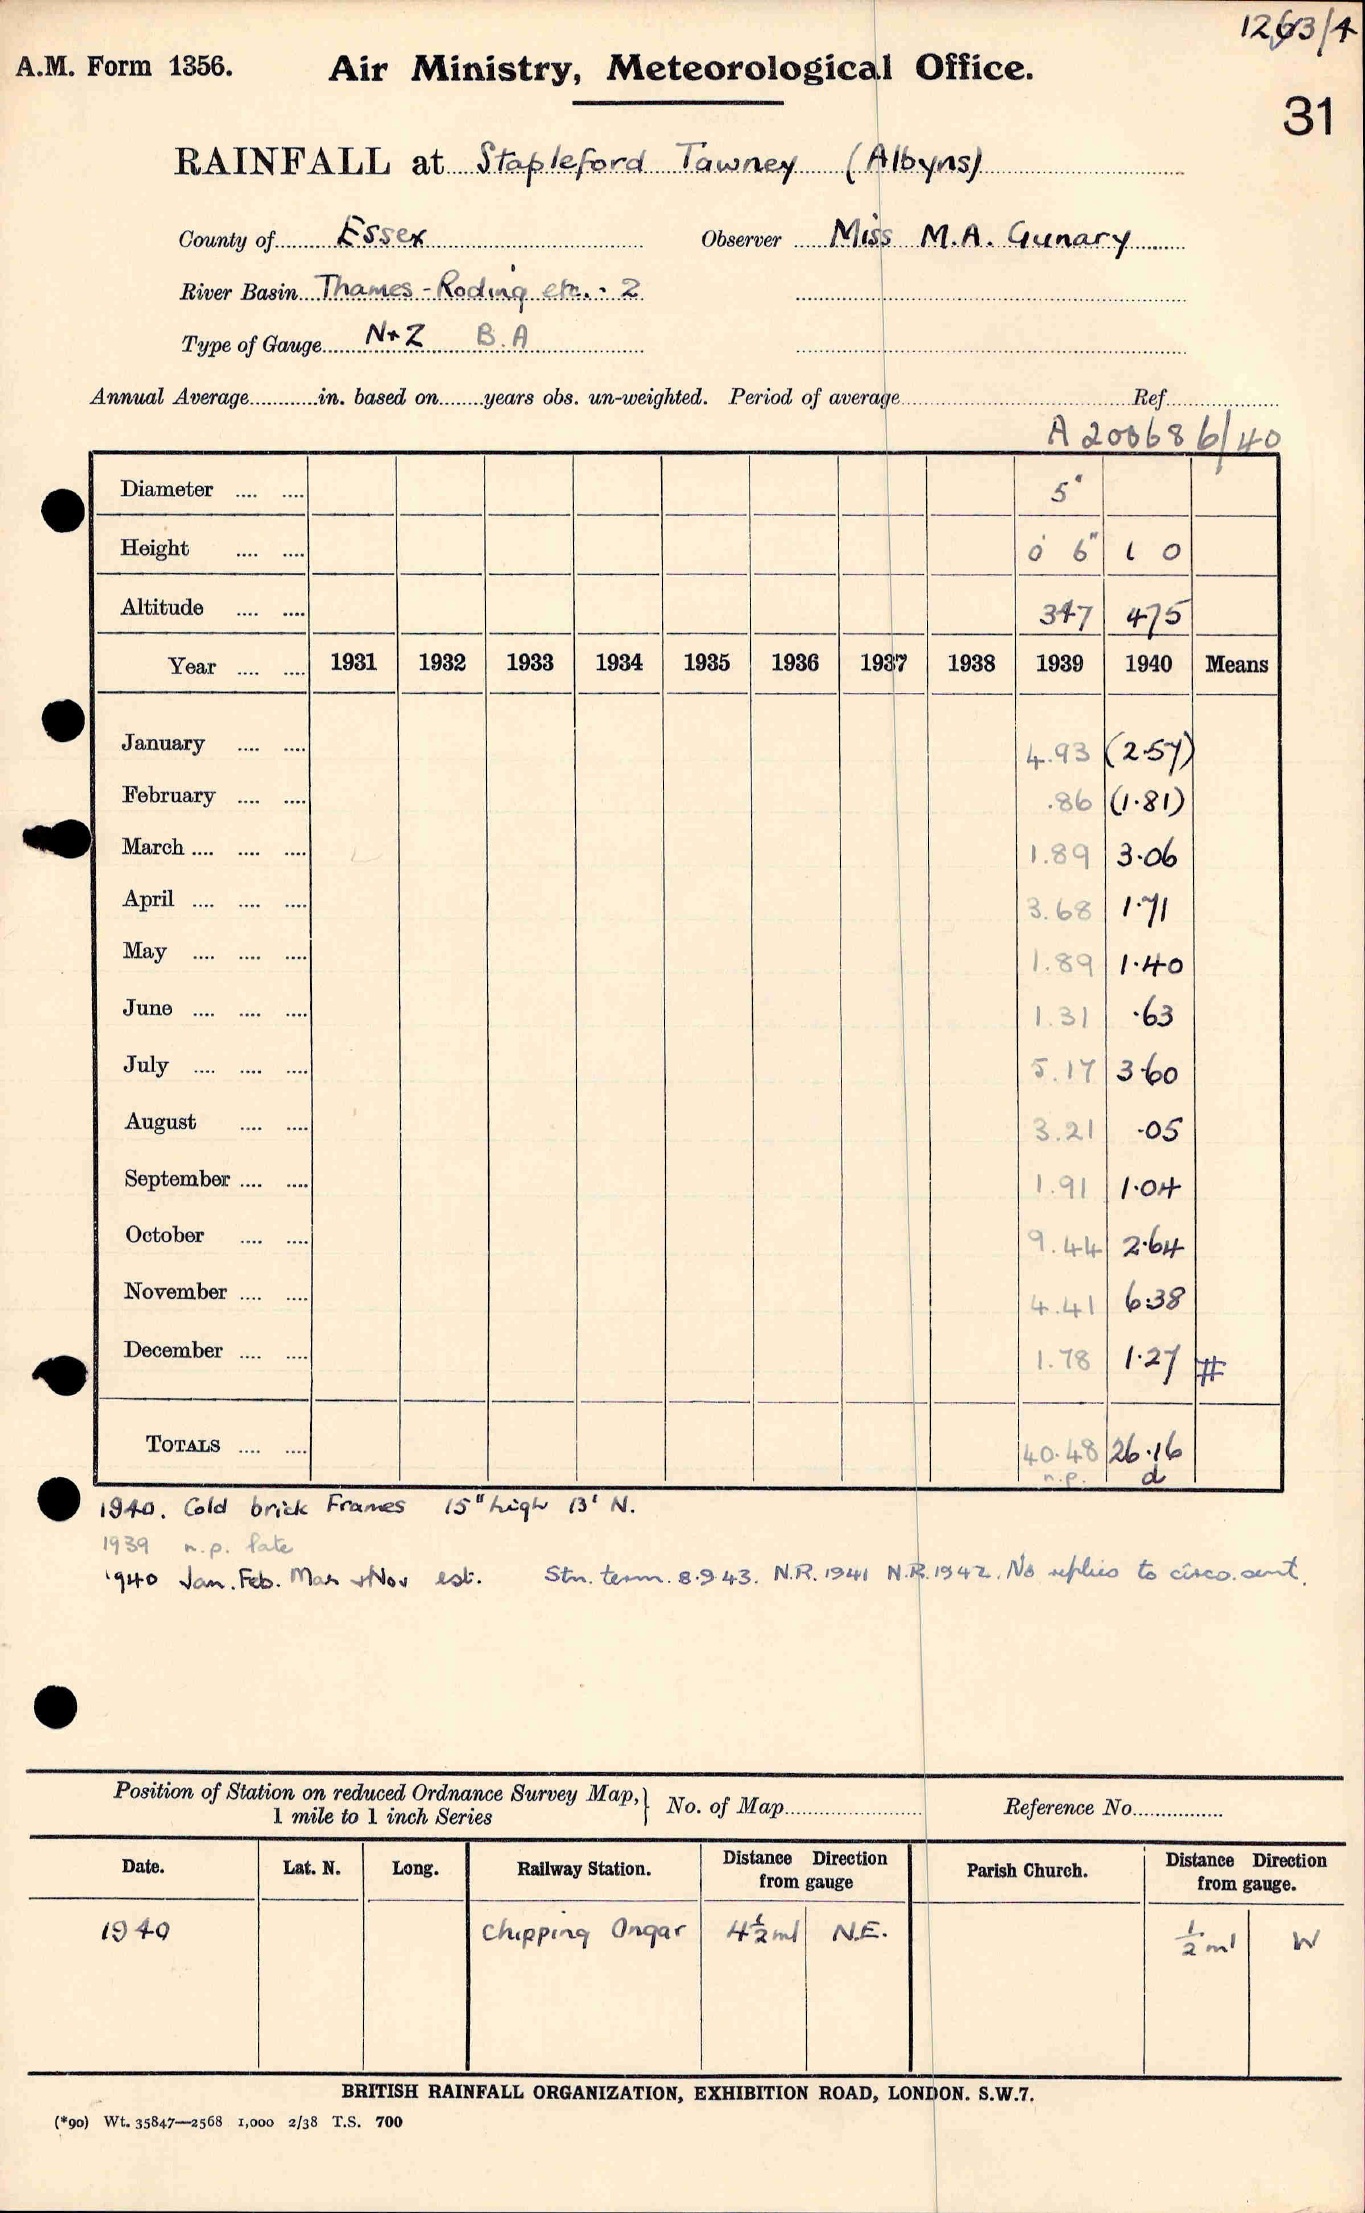 1263/4
A.M. Form 1356. Air Ministry, Meteorological Office.
31
RAINFALL at Stapleford Tawney (Albyns)
County of Essex Observer Miss M.A. Gunary
River Basin Thames - Roding etc. - 2
Type of Gauge N+Z B.A
Annual Average in. based on years obs. un-weighted. Period of average Ref
A 200686/40
Diameter 5"
Height 0' 6" 1 0
Altitude 347 475
Year 1931 1932 1933 1934 1935 1936 1937 1938 1939 1940 Means
January 4.93 (2.57)
February .86 (1.81)
March 1.89 3.06
April 3.68 1.71
May 1.89 1.40
June 1.31 .63
July 5.17 3.60
August 3.21 .05
September 1.91 1.04
October 9.44 2.64
November 4.41 6.38
December 1.78 1.27 #
TOTALS 40.48 26.16
n.p. d
1940. Cold brick Frames 15" high 13' N.
1939 n.p. late
1940 Jan. Feb. Mar + Nov est. Stn. term. 8.9 43. N.R. 1941 N.R. 1942. No replies to circo. sent.
Position of Station on reduced Ordnance Survey Map, } No. of Map Reference No
1 mile to 1 inch Series
Date. Lat. N. Long. Railway Station. Distance Direction from gauge Parish Church. Distance Direction from gauge.
1940 Chipping Ongar 4½ ml N.E. ½ ml W
BRITISH RAINFALL ORGANIZATION, EXHIBITION ROAD, LONDON. S.W.7.
(*90) Wt. 35847—2568 1,000 2/38 T.S. 700